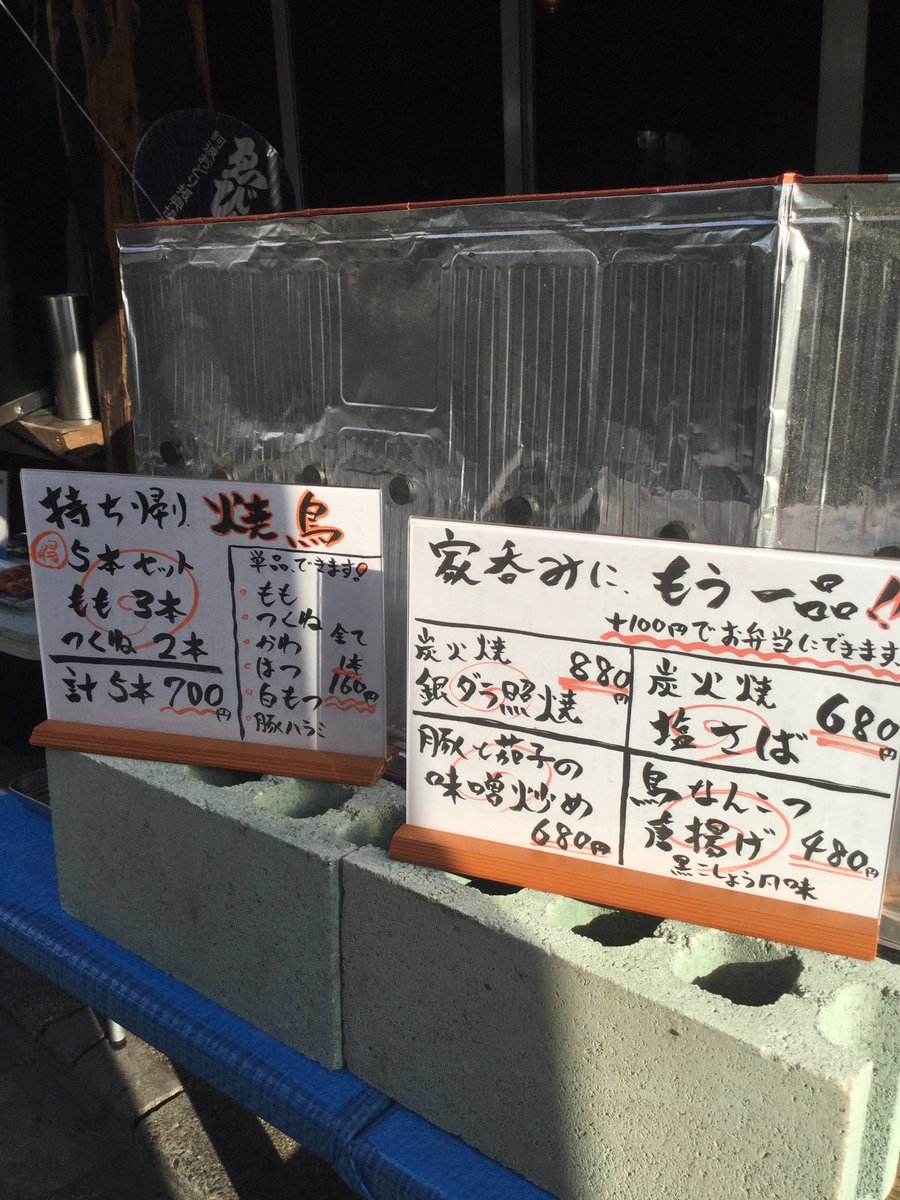 ゑび
持ち帰り 焼鳥
得 5本セット
もも 3本
つくね 2本
計 5本 700円
単品、できます!
もも
つくね
かわ
はつ
白もつ
豚ハラミ
全て
1本
160円
家呑みに、もう一品!!
+100円でお弁当にできます
炭火焼
銀ダラ照焼
880円
炭火焼
塩さば
680円
豚と茄子の
味噌炒め
680円
鳥なんこつ
唐揚げ
480円
黒こしょう風味